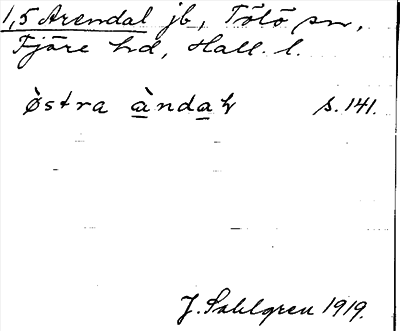 1,5 Arendal jb, Tölö sn,
Fjäre hd, Hall. l.
òstra àndaɫ s. 141.
J. Sahlgren 1919.